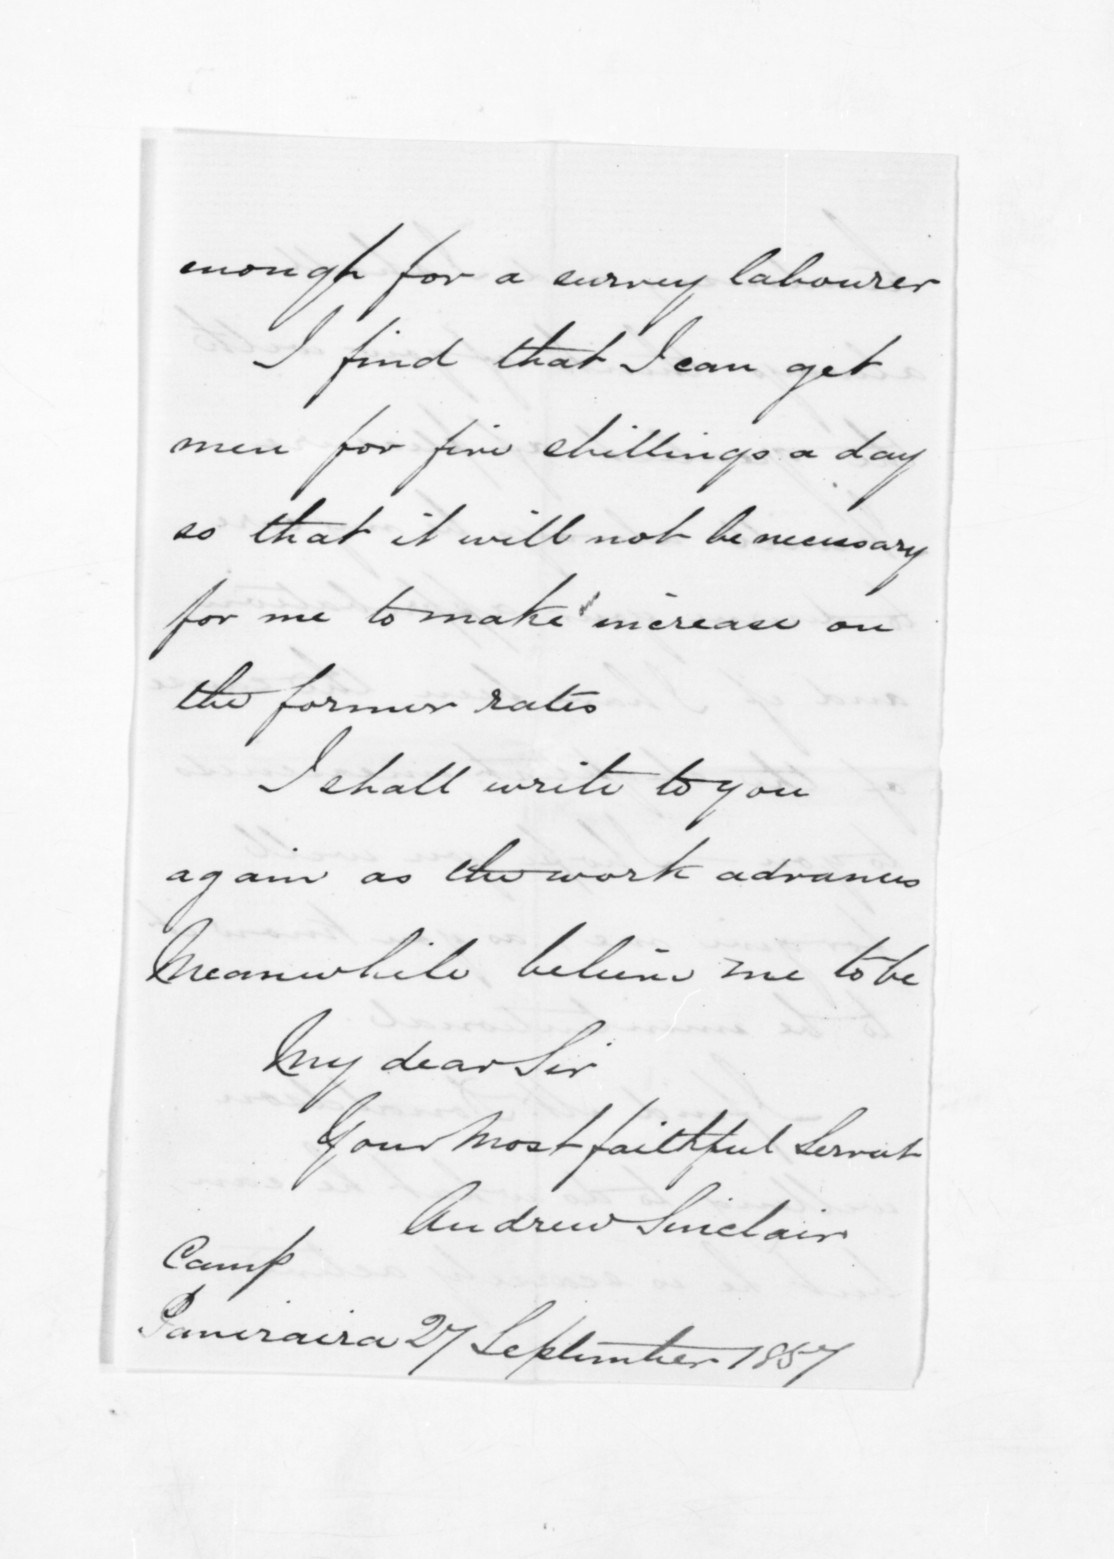 enough for a survey labourer
I find that I can get
men for five shillings a day
so that it will not be necessary
for me to make an increase on
the former rates
I shall write to you
again as the work advances
Meanwhile believe me to be
My dear Sir
Your most faithful Servut
Andrew Sinclair
Camp
27 September 1857